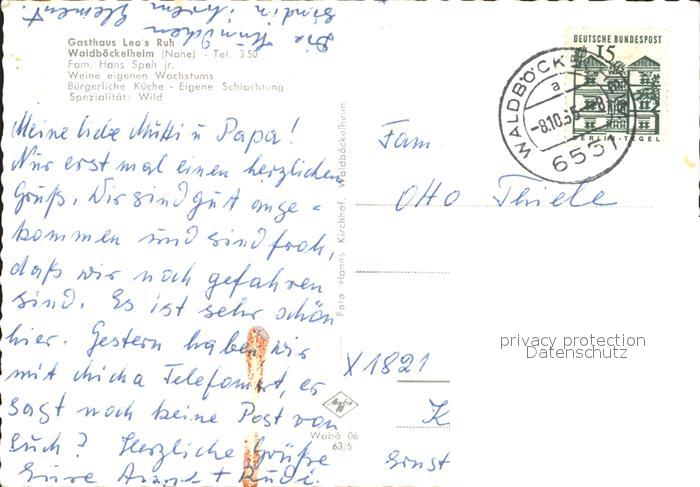 Gasthaus Leo's Ruh
Waldböckelheim (Nahe) - Tel. 350
Fam. Hans Speh jr.
Weine eigenen Wachstums
Bürgerliche Küche - Eigene Schlachtung
Spezialität: Wild
Meine liebe Mutti u Papa!
Nur erst mal einen herzlichen
Gruß. Wir sind gut ange-
kommen und sind froh,
daß wir noch gefahren
sind. Es ist sehr schön
hier. Gestern haben wir
mit Micha Telefoniert, er
sagt noch keine Post von
Euch? Herzliche Grüße
Eure + Rudi.
Die sind in ihrem Element.
Foto Hanns Kirchhof, Waldböckelheim
Wabö 06
63/5
DEUTSCHE BUNDESPOST
15
BERLIN-TEGEL
WALDBÖCKELHEIM
a
-8.10.65-8
6531
Fam.
Otto Thiele
X 1821
K
Ernst
privacy protection
Datenschutz